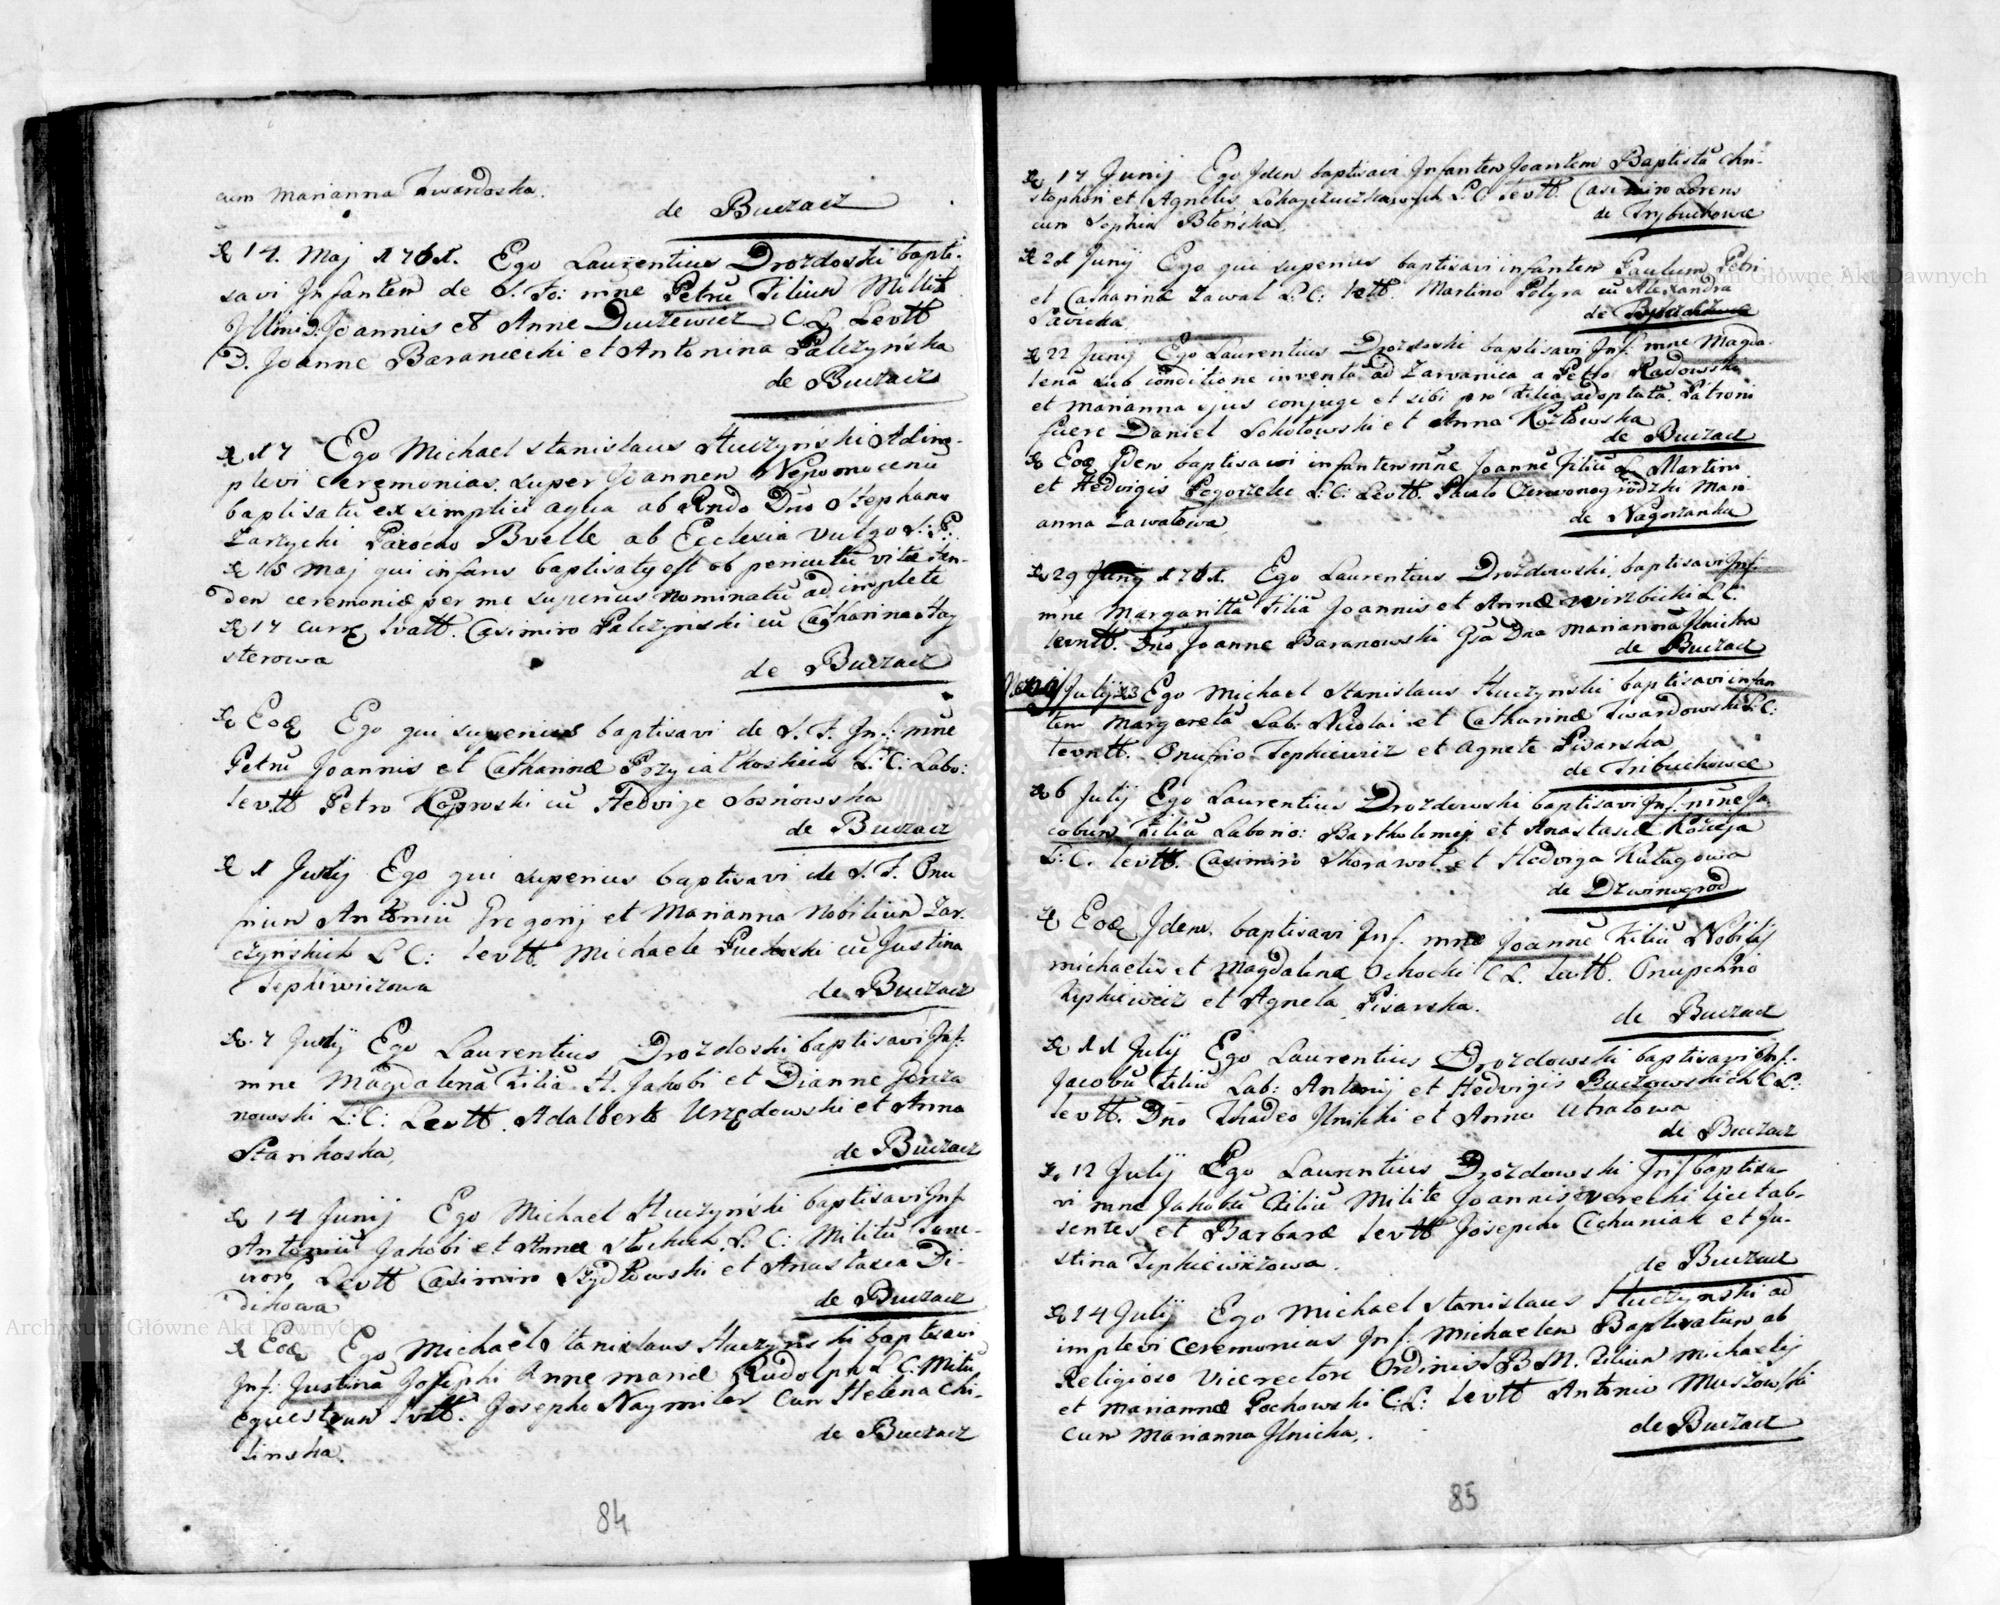 cum Marianna Twardoska.
de Buczacz
14. Maj 1761. Ego Laurentius Drozdoski bapti-
savi Infantem de S. Fo: nne Petrū Filium Millit.
Joannis et Anne Duczewicz C. L. Levtt
D. Joanne Baraniecki et Antonina Palczynska
de Buczacz
17 Ego Michael Stanislaus Huczyński Adim-
plevi ceremonias super Joannem Nepomocenū
baptisatū ex simplici aqua ab Rndo Dno Stephano
Zarzycki Parocho ab Ecclesia vulgo S: P:
16 Maj qui infans baptisaty est ob periculū vitæ
den ceremoniæ per me superius nominatū adimplete
17 curr Casimiro Palczynski cū Catharina Hay
sterowa
de Buczacz
Eoq Ego qui superius baptisavi de S. F. Inf: nne
Petrū Joannis et Catharinæ L: C: Labo:
levtt Petro Koprowski cū Hedvige Sosnowska
de Buczacz
1 Ego qui superius baptisavi de S. F. Onu
Antoniū Gregorij et Marianna Nobilium Zar-
czyńskich L C: levtt. Michaele Puchoski cū Justina
Tepkiwiczowa
de Buczacz
7 Ego Laurentius Drozdoski baptisavi Inf:
nne Magdalenā Filiā H. Jakobi et Dianne
nowski L: C: Levtt. Adalberto Urzędowski et Anna
Starikoska,
de Buczacz
14 Junij Ego Michael Huczyński baptisavi Inf.
Antoniū Jakobi et Annæ L. C: Militū
Levtt Casimiro Szydłowski et Anastasia Di-
dikowa
de Buczacz
Eoq Ego Michael Stanislaus Huczynski baptisavi
Inf: Justinā Josephi Anne mariæ Rudolph L C: Militū
equestrum Josepho Naymiler Cum Helena Chi-
linska.
de Buczacz
84
17 Junij Ego Idem baptisavi Infantem Joantem Baptistā Chri-
stophori et Agnetis L: C levtt. Casimiro Lorens
cum Sophia Błońska
de Trybuchowce
21 Junij Ego qui superius baptisavi infantem Paulum Petri
et Catharinæ Zawal L: C: levtt. Martino Potyra cū Alexandra
Savicka
de
22 Junij Ego Laurentius Drozdoski baptisavi Inf: nne Magda-
lenā sub conditione inventā ad Zarvanica a Petro Radowski
et Marianna ejus conjuge et sibi pro filia adoptatā. Patroni
fuere Daniel Sokołowski et Anna Kozłowska
de Buczacz
Eoq Idem baptisavi infantem nne Joannē Filiū L. Martini
et Hedvigis Pogorzelec L: C: Levtt. Paulo Czerwonogrodzki Mari-
anna Zawałowa
de Nagorzanka
29 Junij 1761. Ego Laurentius Drozdowski baptisavi Inf.
nne Margarittā Filiā Joannis et Annæ Wirzbicki L C.
levntt. Dno Joanne Baranowski Gsa Dna Marianna Ilnicka
de Buczacz
Julij Ego Michael Stanislaus Huczynski baptisavi infan
tem Margaretā Lab: Nicolai et Catharinæ Twardowski L: C:
levntt. Onufrio Tepkiewicz et Agnete Pisarska
de Tribuchowce
6 Julij Ego Laurentius Drozdowski baptisavi Inf. nne Ja
cobum Filiū Laborio: Bartholomej et Anastasiæ Kozieja
L: C. levtt. Casimiro et Hedviga
de Dzwinogrod
Eoq Idem baptisavi Inf. nne Joannē Filiū Nobilis
Michaelis et Magdalenæ Ochocki C. L. levtt. Onuphrio
Tepkiewicz et Agneta Pisarska.
de Buczacz
11 Julij Ego Laurentius Drozdowski baptisavi Inf.
Jacobū Filiū Lab: Antonij et Hedvigis Buczowskich C L:
levtt. Dno Thadeo Ilnicki et Anna Utratowa
de Buczacz
12 Julij Ego Laurentius Drozdowski Inf baptisa-
vi nne Jakobū Filiū Milite Joannis licet ab-
sentes et Barbaræ levtt Josepho Cichuniak et Ju-
stina Tepkiewiczowa.
de Buczacz
14 Julij Ego Michael Stanislaus Huczynski ad
implevi Ceremonias Inf: Michaelem Baptisatum ab
Religioso Vicerectore Ordinis S B M. Filium Michaelis
et Mariannæ Pochowski C. L: levtt Antonio Muszowski
Cum Marianna Ilnicka.
de Buczacz
85
Archiwum Główne Akt Dawnych
Główne Akt Dawnych